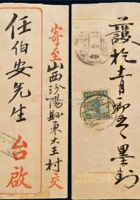 寄至山西汾陽縣東大王村交
任伯安先生
台啟
護於十月初六日墨封